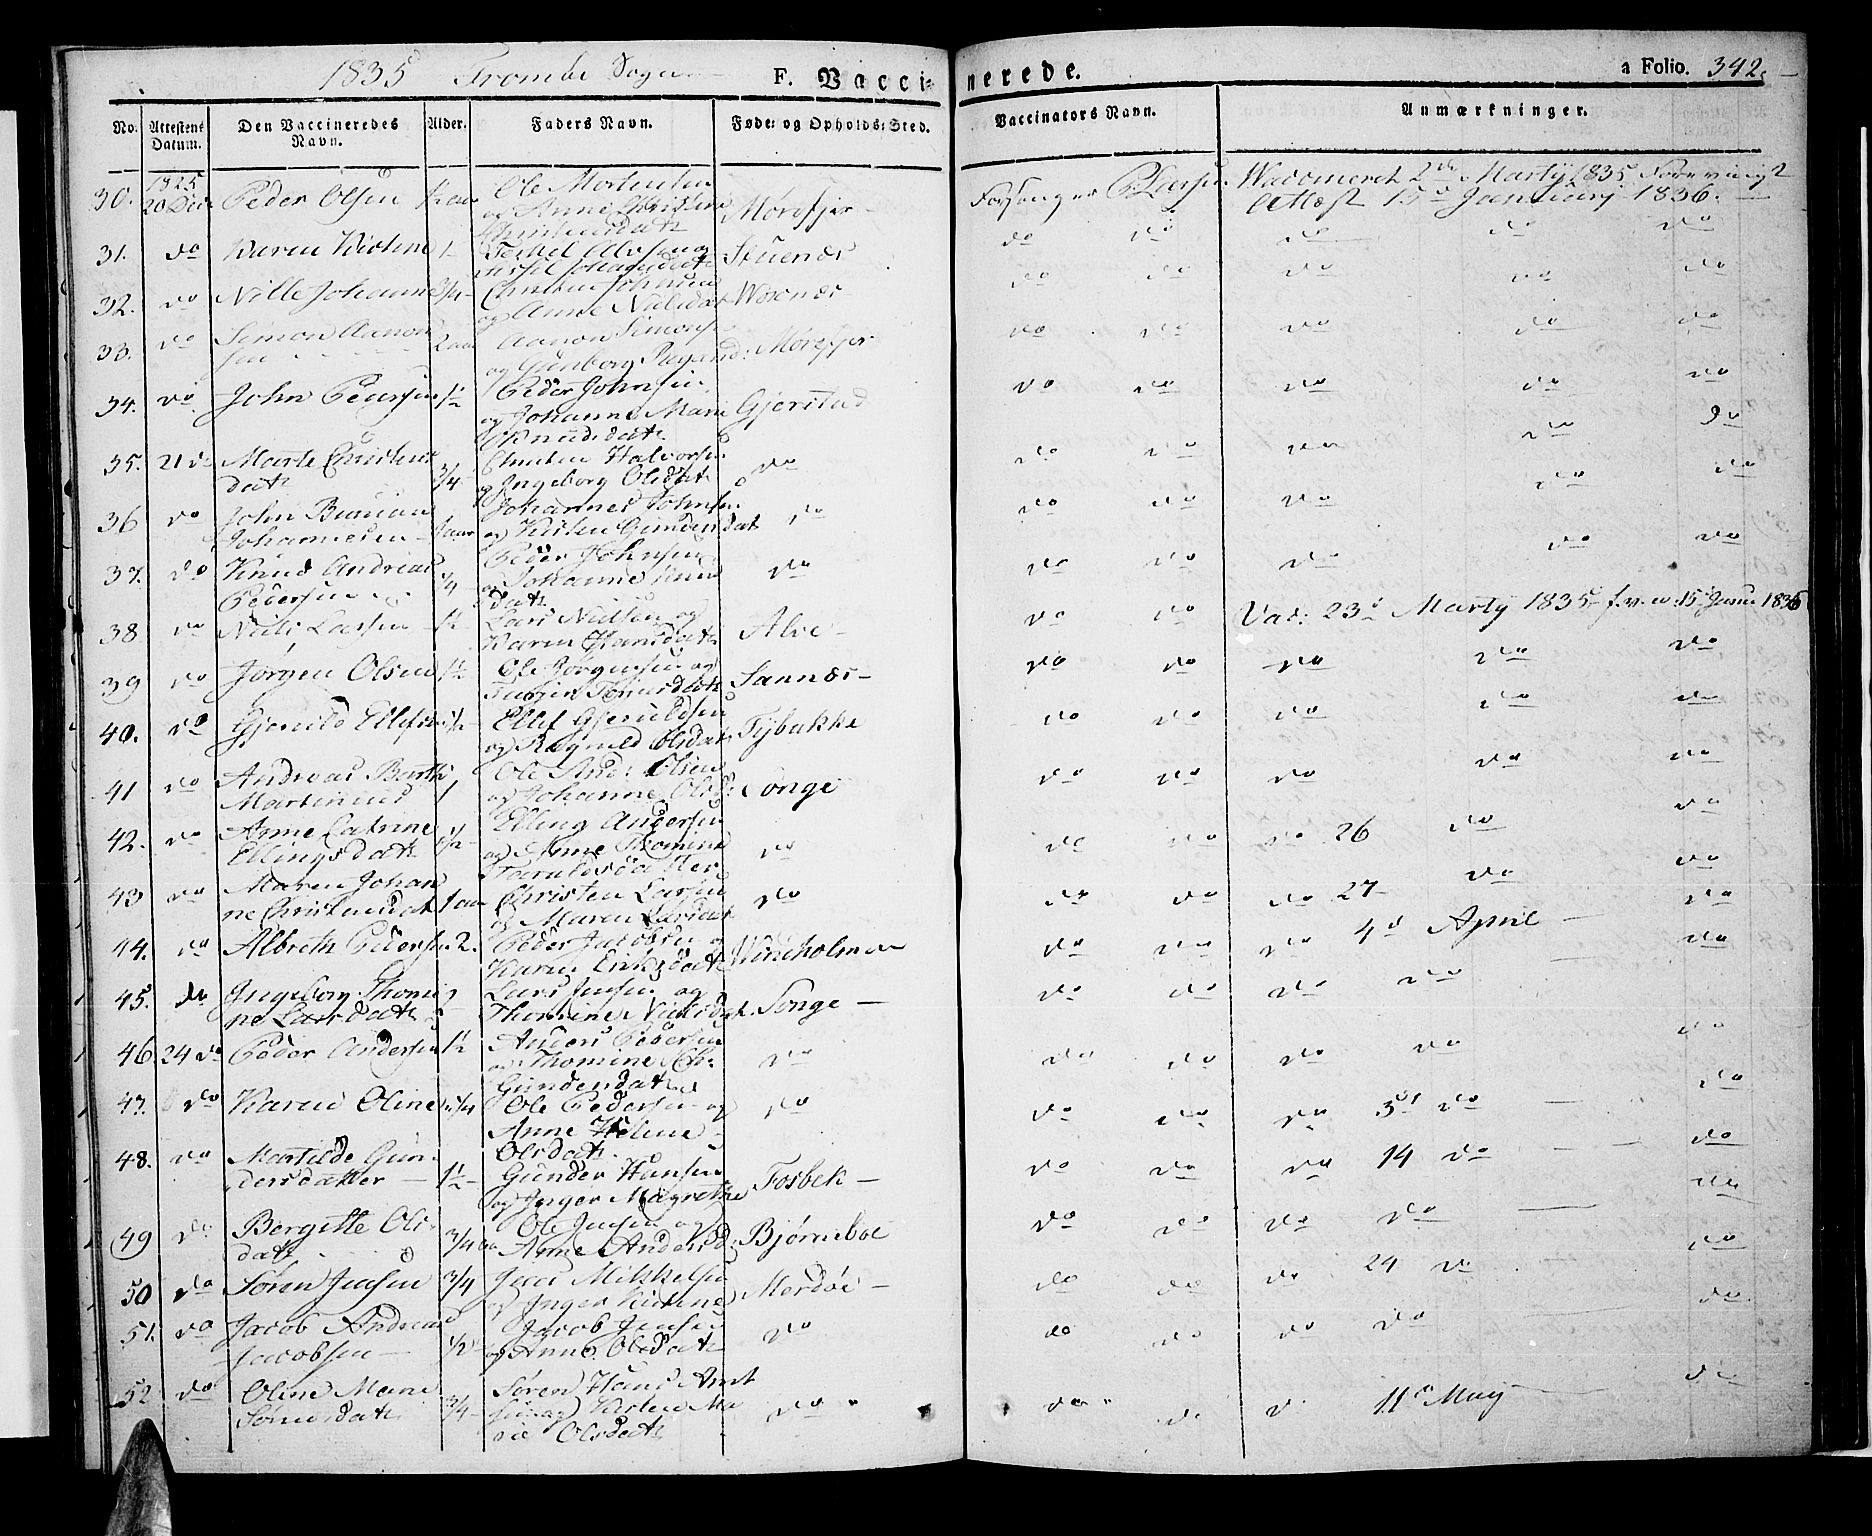 1835 Tromöe Sogn F. Vaccinerede. a Folio. 342.
No. Attestens Datum. Den Vaccineredes Navn. Alder. Faders Navn. Føde- og Opholds-Sted. Vaccinators Navn. Anmærkninger.
30. 1835 20 Dec Peder Olsen Ole Mortensen og Anne Christensdatr Morefjer Forsanger P. Larsen Vaccineret 2de Martij 1835 Attest 15de Januarij 1836.
31. do Karen Kirstine 1 Terkel og Johannesdatr Stuenes do do do do do
32. do Nille Johanne 3/4 Christen Johnsen og Anne Nielsdat Woxnæs do do do do do
33. do Simon Aanonsen 2 aar Aanon Simonsen og Gunborg Morefjer do do do do do
34. do John Pedersen 1½ Peder Johnsen og Johanne Marie Knudsdatr Gjerstad do do do do do
35. 21 do Marte Christensdatr 3/4 Christen Halvorsen og Ingeborg Olsdatr do do do do do do
36 do John Johannesen 1 aar Johannes Johnsen og Kirsten Gundersdat do do do do do do
37. do Knud Andreas Pedersen 1/4 Peder Johnsen og Johanne Knudsdatr do do do do do do
38 do Niels Larsen 1½ Lars Nielsen og Karen Hansdatr Alve do do Vac: 23d Martij 1835 f. v. a. 15 Janu 1836
39 do Jørgen Olsen 1½ Ole Jörgensen og Sannæs do do do do do
40. do Gjeruld Ellefsen 1/2 Ellef Gjeruldsen og Ragnild Olsdatr Tybakke do do do do do
41 do Andreas Martinius 1 Ole And: Olsen og Johanne Olsd: Songe do do do do do
42. do Anne Catrine Ellingsdatr 1/2 Elling Andersen og Anne Thomine Taraldsdatter do do do do 26 do do
43 do Maren Johanne Christensdat 1 aar Christen Larsen og Maren Larsdat do do do do 27 do do
44. do Albreth Pedersen 2. Peder Jacobsen og Karen Eriksdatr Wineholmen do do do 4d April do
45. do Ingeborg Thomine Larsdatr Lars Jensen og Thomine Nielsdat. Songe do do do do do
46 24 do Peder Andersen 1½ Anders Pedersen og Thomine Gundersdatr do do do do do do
47. do Karen Oline 1/4 Ole Pedersen og Anne Helene Olsdatr do do do do 3d do do
48. do Martilde Gundersdatter 1½ Gunder Hansen og Inger Magrethe Fosbek do do do 14 do do
49 do Bergitte Olsdatr 3/4 Ole Jensen og Anne Andersd: Bjørneboe do do do do do
50 do Sören Jensen 3/4 Jens Mikkelsen og Inger Kirstine Merdöe do do do 24 do do
51. do Jacob Andreas Jacobsen 1/2 Jacob Jensen og Anne Olsdatr do do do do do do
52 do Oline Marie Sörensdatr 3/4 Sören Hans og Kirsten Marie Olsdatr do do do do 11d Maij do